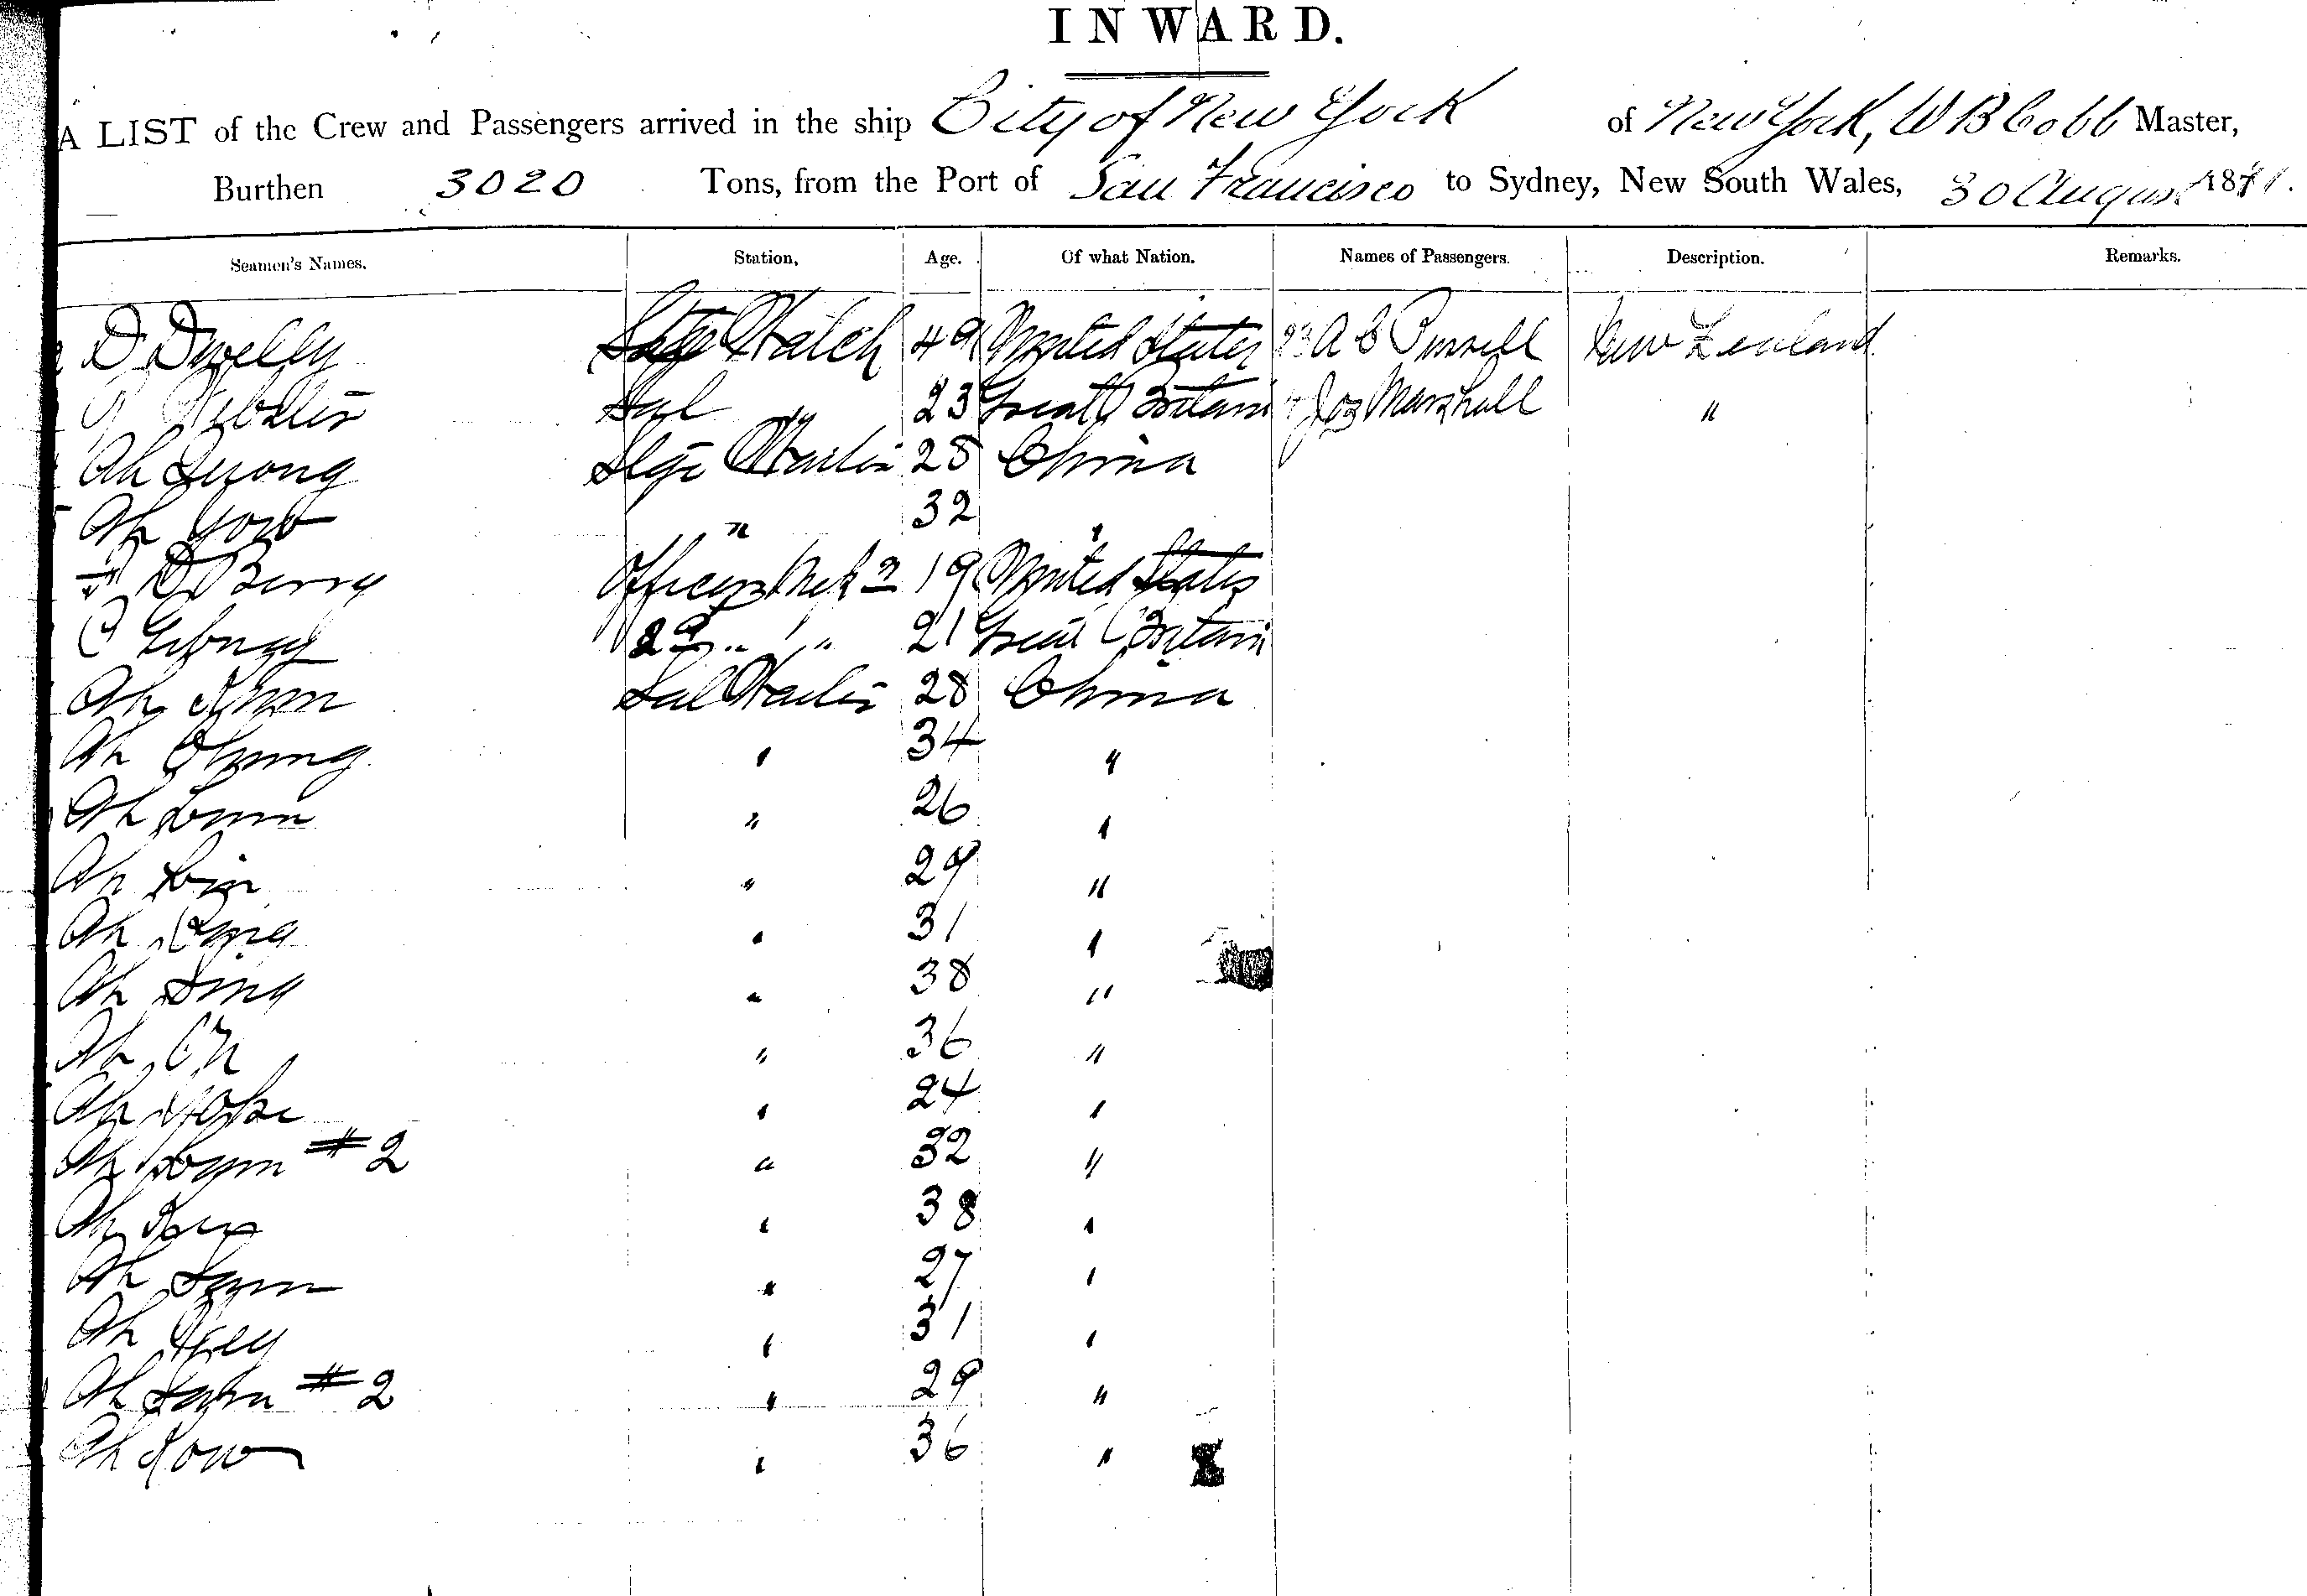 INWARD.
A LIST of the Crew and Passengers arrived in the ship City of New York of New York, W B Cobb Master,
Burthen 3020 Tons, from the Port of San Francisco to Sydney, New South Wales, 30 August 1881.
Seamen's Names. Station. Age. Of what Nation. Names of Passengers. Description. Remarks.
D Dwelly Watch 49 United States A B Purcell New Zealand
Sal " 23 Great Britain Jos Marshall "
Ah Quong Stge Waiter 28 China
Ah Yow " 32 "
D Berry Officers Mess 19 United States
C 2nd " " 21 Great Britain
Ah Sal Waiter 28 China
Ah Chung " 34 "
Ah " 26 "
Ah Lin " 29 "
Ah " 31 "
Ah Sing " 38 "
Ah " 36 "
Ah " 24 "
Ah #2 " 32 "
Ah " 38 "
Ah Sam " 27 "
Ah " 31 "
Ah #2 " 29 "
Ah Kow " 36 "